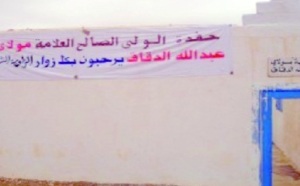 حفدة الولي الصالح العلامة مولاي
عبدالله الدقاق يرحبون بكل زوار